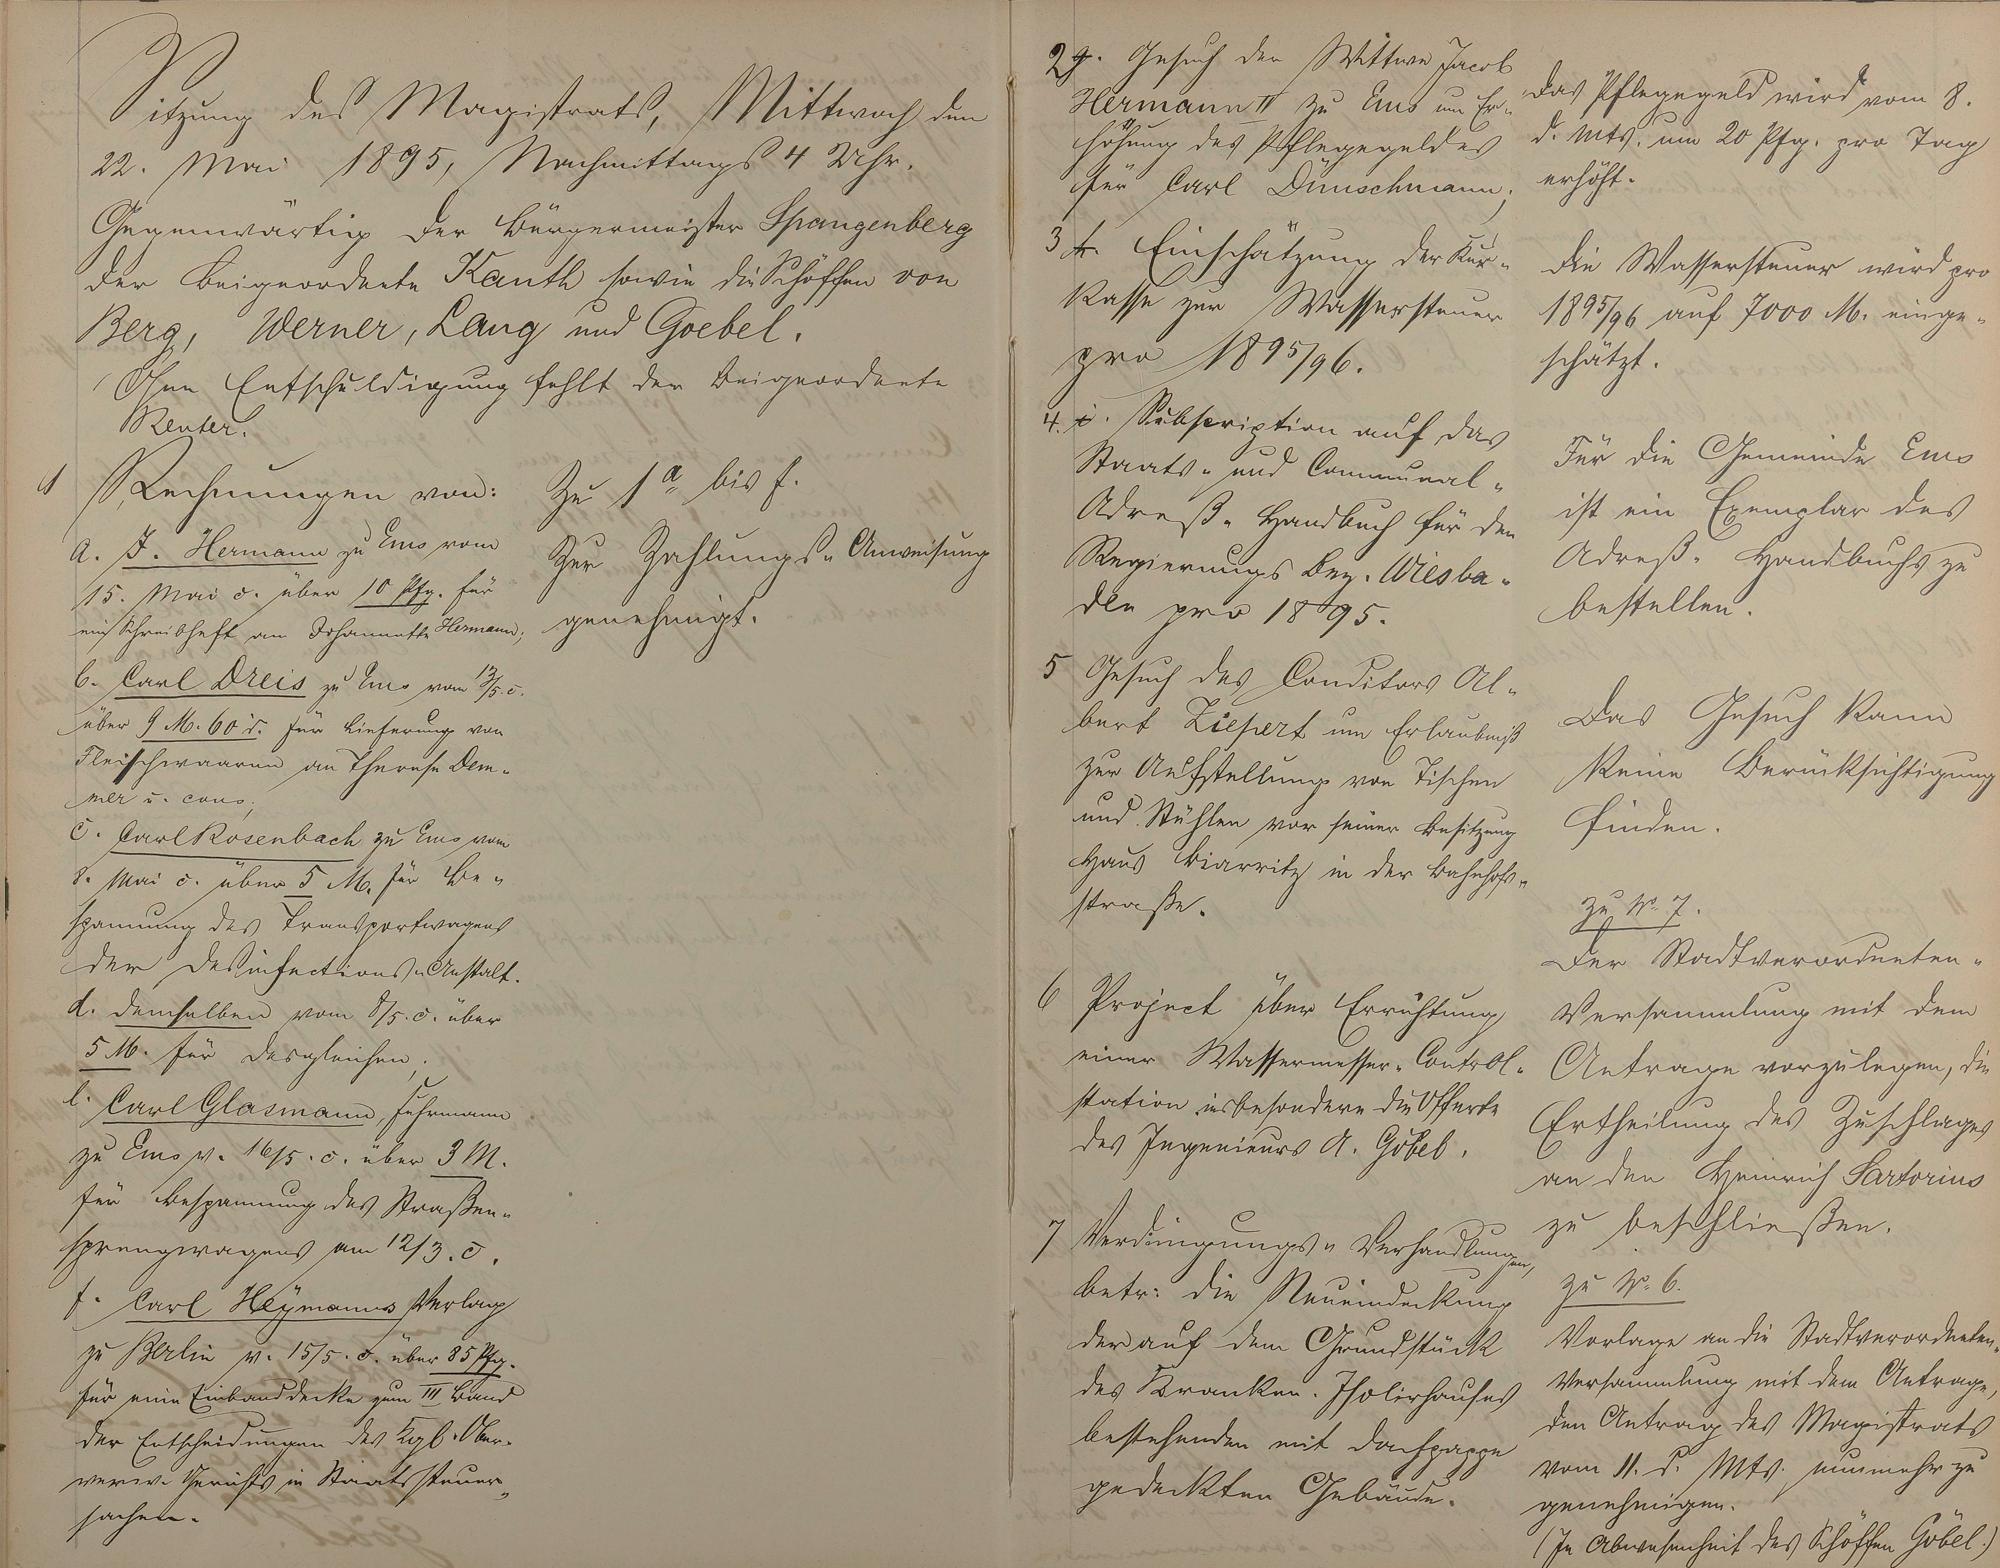 Sitzung des Magistrats, Mittwoch den
22. Mai 1895, Nachmittags 4 Uhr.
Gegenwärtig der Bürgermeister Spangenberg
der Beigeordnete Kauth sowie die Schöffen von
Berg, Werner, Lang und Goebel.
Ohne Entschuldigung fehlt der Beigeordnete
Reuter.
1 Rechnungen von:
a. J. Hermann zu Ems vom
15. Mai c. über 10 Pfg. für
ein Schreibheft an Johannette Hermann;
b. Carl Dreis zu Ems vom 13/5. c.
über 9 M. 60 d. für Lieferung von
Fleischwaaren an Therese Dem-
mer u. cons;
c. Carl Rosenbach zu Ems vom
8. Mai c. über 5 M. für Be-
spannung des Transportwagens
der Desinfections-Anstalt.
d. demselben vom 8/5. c. über
5 M. für desgleichen;
e. Carl Glasmann, Fuhrmann
zu Ems v. 16/5. c. über 3 M.
für Bespannung des Straßen-
sprengwagens am 12/3. c.
f. Carl Heymanns Verlag
zu Berlin v. 15/5. c. über 85 Pfg.
für eine Einbanddecke zum III Band
der Entscheidungen des Kgl. Ober-
verw. Gerichts in Staatssteuer-
sachen.
Zu 1 a bis f.
Zur Zahlungs-Anweisung
genehmigt.
2 g. Gesuch der Wittwe Jacob
Hermann II zu Ems um Er-
höhung des Pflegegeldes
für Carl Dünschmann;
Das Pflegegeld wird vom 8.
d. Mts. um 20 Pfg. pro Tag
erhöht.
3 h. Einschätzung der Kur-
Kasse zur Wassersteuer
pro 1895/96.
Die Wassersteuer wird pro
1895/96 auf 7000 M. einge-
schätzt.
4. i. Subscription auf das
Staats- und Communal-
Adreß-Handbuch für den
Regierungs Bez. Wiesba-
den pro 1895.
Für die Gemeinde Ems
ist ein Exemplar des
Adreß-Handbuchs zu
bestellen.
5 Gesuch des Conditors Al-
bert Ziepert um Erlaubniß
zur Aufstellung von Tischen
und Stühlen vor seiner Besitzung
Haus Biarritz in der Bahnhof-
straße.
Das Gesuch kann
keine Berücksichtigung
finden.
6 Project über Errichtung
einer Wassermesser-Control-
station insbesondere die Offerte
des Ingenieurs A. Göbel.
7 Verdingungs-Verhandlungen,
betr: die Neueindeckung
der auf dem Grundstück
des Kranken-Isolirhauses
bestehenden mit Dachpappe
gedeckten Gebäude.
zu No. 7.
Der Stadtverordneten-
Versammlung mit dem
Antrage vorzulegen, die
Ertheilung des Zuschlages
an den Heinrich Sartorius
zu beschließen.
zu No. 6.
Vorlage an die Stadtverordneten-
Versammlung mit dem Antrage,
den Antrag des Magistrats
vom 11. d. Mts. nunmehr zu
genehmigen.
(In Abwesenheit des Schöffen Göbel.)